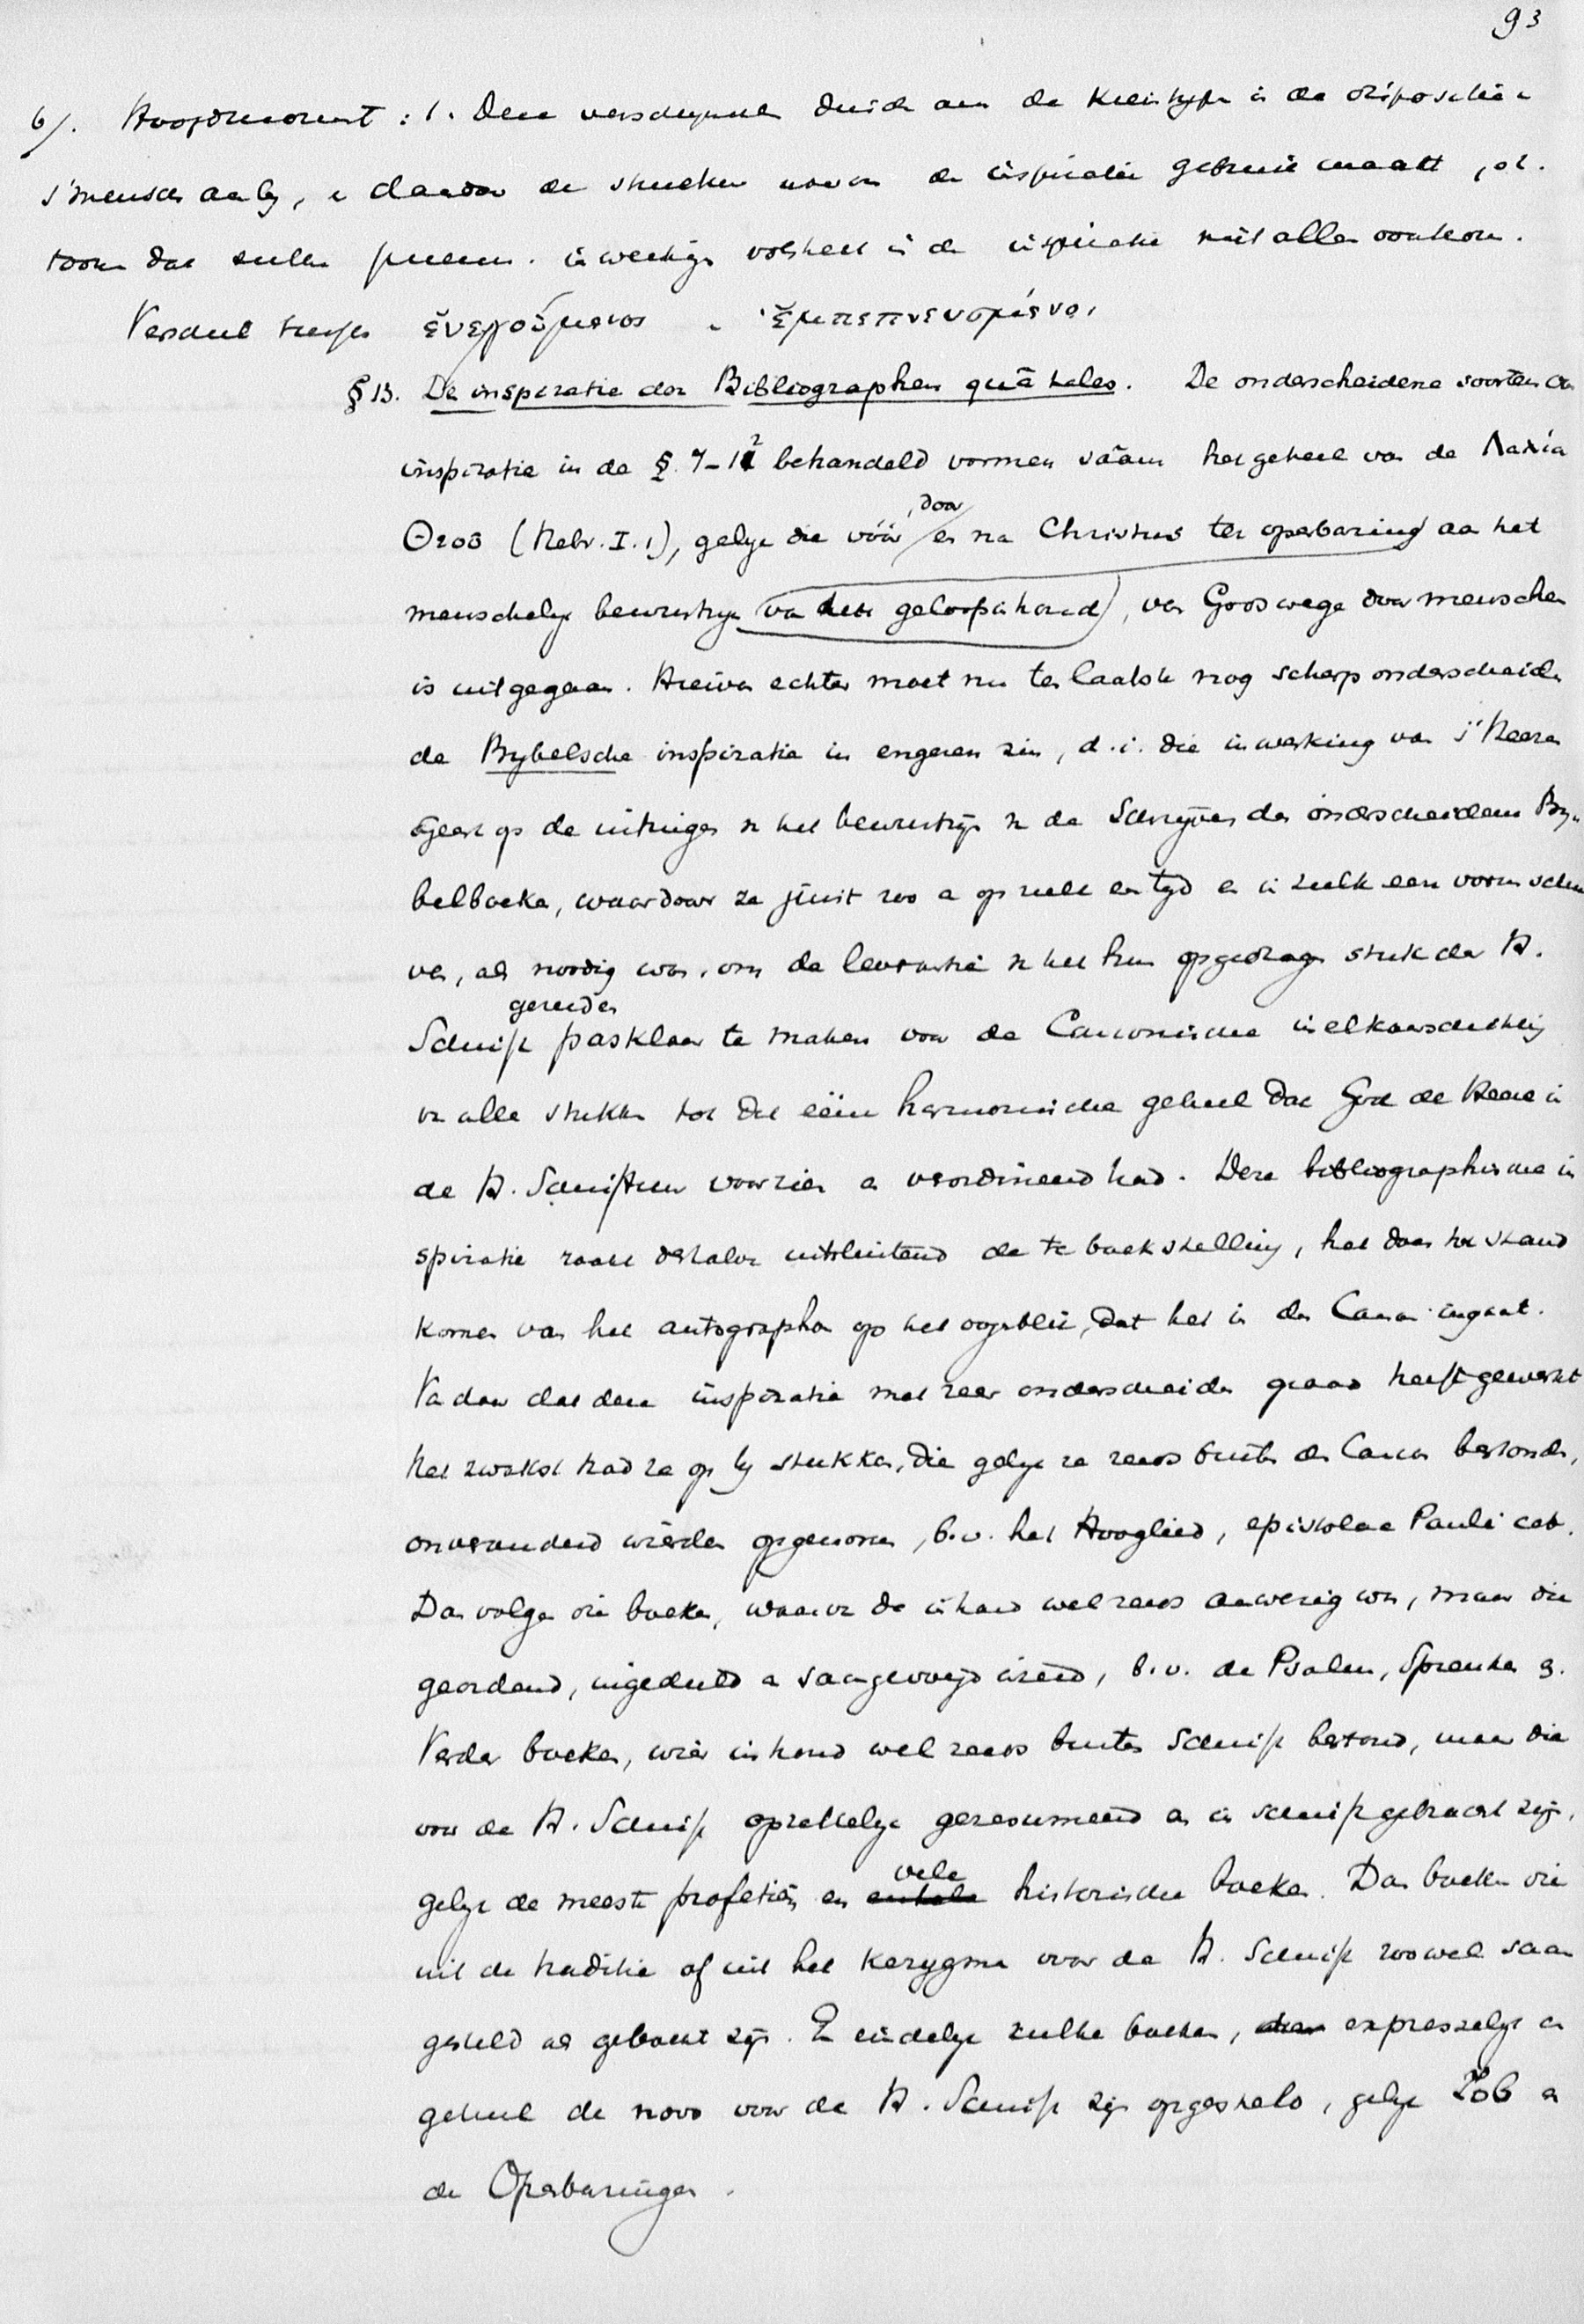 93
6/. Hoofdmoment : 1. Deze verschijnselen duide aan de kiemtype in de dispositie
's menschen aanleg, en daardoor de stukken waarvan de inspiratie gebruik maakt,
toone dat zulke pneum. inwerking volstrekt in de inspiratie niet alleen voorkom.
Verschil tussen ἐνεργούμενος en ἐμπεπνευσμένοι
§ 13. De inspiratie der Bibliographen quâ tales. De onderscheidene soorten van
inspiratie in de §. 7-12 behandeld vormen sáám het geheel van de λαλία
Θεοῦ (Hebr. I. 1), gelijk die vóór, door en na Christus ter openbaring aan het
menschelijk bewustzijn van den geloofsinhoud, van Godswege door menschen
is uitgegaan. Hiervan echter moet nu ten laatste nog scherp onderscheiden
de Bijbelsche inspiratie in engeren zin, d.i. die inwerking van 's Heeren
Geest op de uitinge en het bewustzijn van de Schrijvers der onderscheidene Bij-
belboeken, waardoor ze juist zoo en op zulk een tijd en in zulk een vorm schre
ven, als noodig was, om de leverantie van het hun opgedragen stuk der H.
gereeder
Schrift pasklaar te maken voor de Canonische inelkaarschikking
van alle stukken tot dat ééne harmonische geheel dat God de Heere in
de H. Schriftuur voorzien en verordineerd had. Deze bibliographische in
spiratie raakt derhalve uitsluitend de te boek stelling, het doen tot stand
komen van het autographon op het oogenblik, dat het in den Canon ingaat.
Vandaar dat deze inspiratie met zeer onderscheiden graad heeft gewerkt
Het zwakst had ze op bij stukken, die gelijk ze reeds buiten den Canon bestonden,
onveranderd wierden opgenomen, b.v. het Hooglied, epistolae Pauli cet.
Dan volgen die boeken, waarvan de inhoud wel reeds aanwezig was, maar die
geordend, ingedeeld en saamgevoegd wierd, b.v. de Psalmen, Spreuken e.
Verder boeken, wier inhoud wel reeds buiten Schrift bestond, maar die
voor de H. Schrift opzettelijk geresumeerd en in schrift gebracht zijn,
gelijk de meeste profetiën en vele historische boeken. Dan boeken die
uit de traditie of uit het kerygma voor de H. Schrift zoowel saam
gesteld als geboekt zijn. En eindelijk zulke boeken, expresselijk en
geheel de novo voor de H. Schrift zijn opgesteld, gelijk Job en
de Openbaringen.